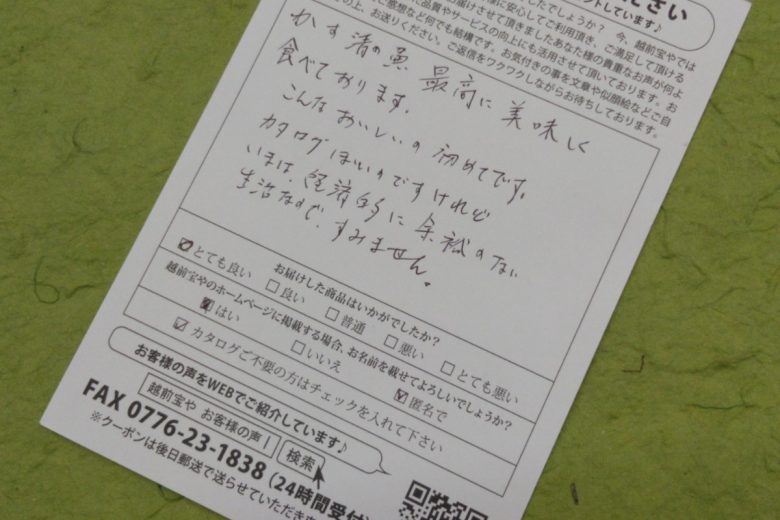 ださい
トしています♪
したでしょうか？ 今、越前宝やでは
様に安心してご利用頂き、ご満足して頂ける
お届けさせて頂きましたあなた様の貴重なお声が何よ
に品質やサービスの向上にも活用させて頂いております。お
ご感想など何でも結構です。お気付きの事を文章や似顔絵などご自
の上、お送りください。ご返信をワクワクしながらお待ちしております。
かす漬の魚 最高に美味しく
食べております。
こんなおいしいの初めてです。
カタログほしいのですけれど
いまは、経済的に余裕のない
生活なので、すみません。
お届けした商品はいかがでしたか？
☑とても良い □良い □普通 □悪い □とても悪い
越前宝やのホームページに掲載する場合、お名前を載せてよろしいでしょうか？
はい □いいえ ☑匿名で
☑カタログご不要の方はチェックを入れて下さい
お客様の声をWEBでご紹介しています♪
越前宝や お客様の声！ 検索
FAX 0776-23-1838 (24時間受付)
※クーポンは後日郵送で送らせていただきま